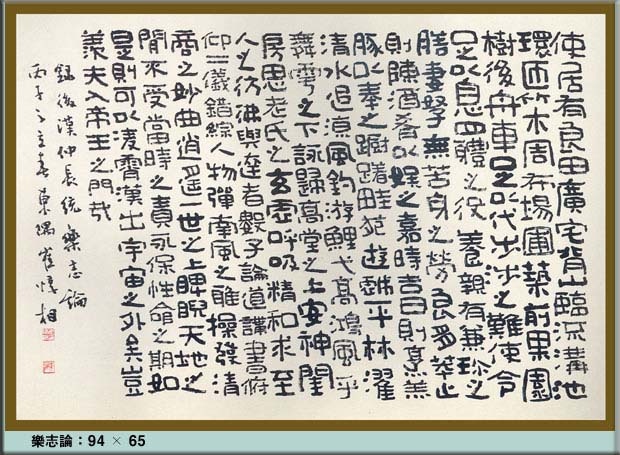 使居有良田廣宅背山臨流溝池
環匝竹木周布場圃築前果園
樹後舟車足以代步涉之難使令
足以息四體之役養親有兼珍之
膳妻孥無苦身之勞良朋萃止
則陳酒肴以娛之嘉時吉日則烹羔
豚以奉之躕躇畦苑遊戲平林濯
清水追凉風釣游鯉弋高鴻風乎
舞雩之下詠歸高堂之上安神閨
房思老氏之玄虛呼吸精和求至
人之彷彿與達者數子論道講書俯
仰二儀錯綜人物彈南風之雅操發清
商之妙曲逍遙一世之上睥睨天地之
間不受當時之責永保性命之期如
是則可以凌霄漢出宇宙之外矣豈
羨夫入帝王之門哉
錄後漢仲長統樂志論
丙子立春東隅崔相
樂志論 : 94 × 65